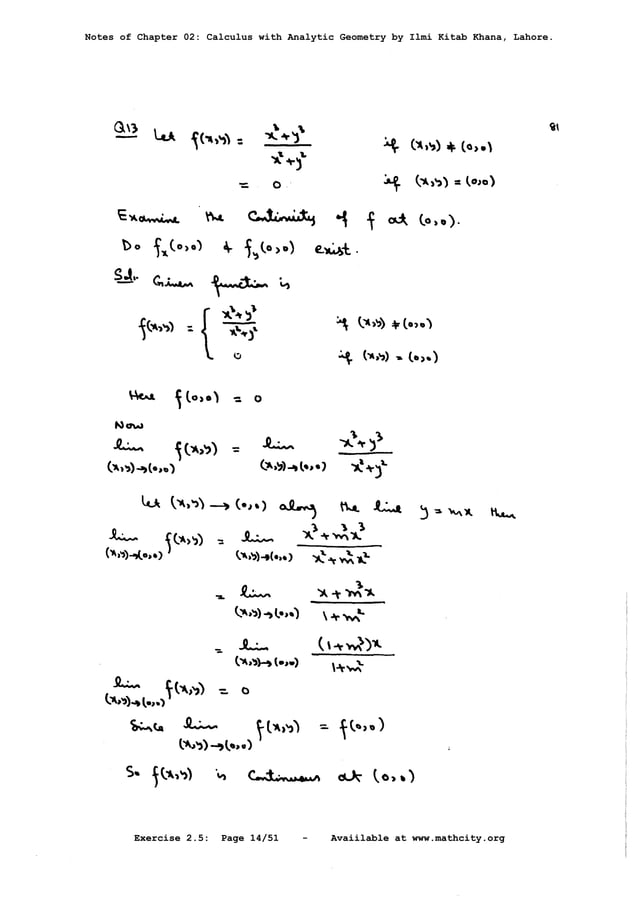 Notes of Chapter 02: Calculus with Analytic Geometry by Ilmi Kitab Khana, Lahore.
81
Q13 Let f(x,y) = (x³+y³)/(x²+y²) if (x,y) ≠ (0,0)
= 0 if (x,y) = (0,0)
Examine the Continuity of f at (0,0).
Do fₓ(0,0) & f_y(0,0) exist.
Sol. Given function is
f(x,y) = { (x³+y³)/(x²+y²) if (x,y) ≠ (0,0)
0 if (x,y) = (0,0)
Here f(0,0) = 0
Now
lim (x,y)→(0,0) f(x,y) = lim (x,y)→(0,0) (x³+y³)/(x²+y²)
Let (x,y) → (0,0) along the line y = mx then
lim (x,y)→(0,0) f(x,y) = lim (x,y)→(0,0) (x³+m³x³)/(x²+m²x²)
= lim (x,y)→(0,0) (x+m³x)/(1+m²)
= lim (x,y)→(0,0) ((1+m³)x)/(1+m²)
lim (x,y)→(0,0) f(x,y) = 0
Since lim (x,y)→(0,0) f(x,y) = f(0,0)
So f(x,y) is Continuous at (0,0)
Exercise 2.5: Page 14/51 - Avaiilable at www.mathcity.org